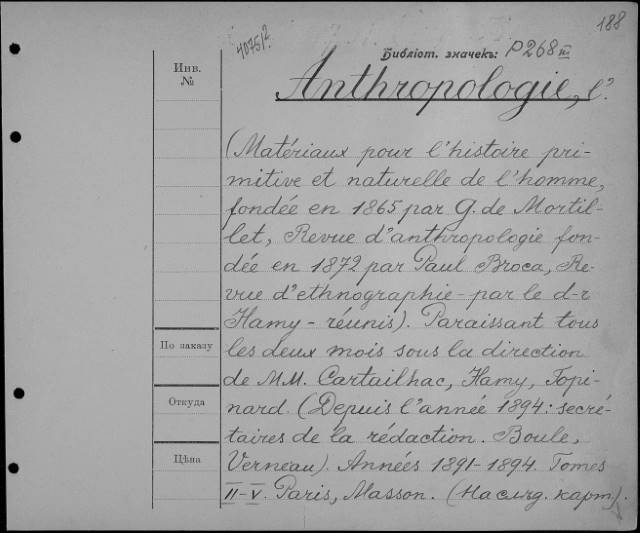 188
40751?.
Библіот. значекъ: P268 III
Anthropologie, l'.
Инв.
№
(Matériaux pour l'histoire pri-
mitive et naturelle de l'homme,
fondée en 1865 par G. de Mortil-
let, Revue d'anthropologie fon-
dée en 1872 par Paul Broca, Re-
vue d'ethnographie - par le d-r
Hamy - réunis). Paraissant tous
По заказу
les deux mois sous la direction
de M.M. Cartailhac, Hamy, Topi-
Откуда
nard. (Depuis l'année 1894: secré-
taires de la rédaction. Boule,
Цѣна
Verneau). Années 1891-1894. Tomes
II-V. Paris, Masson. (Наслѣд. карт).